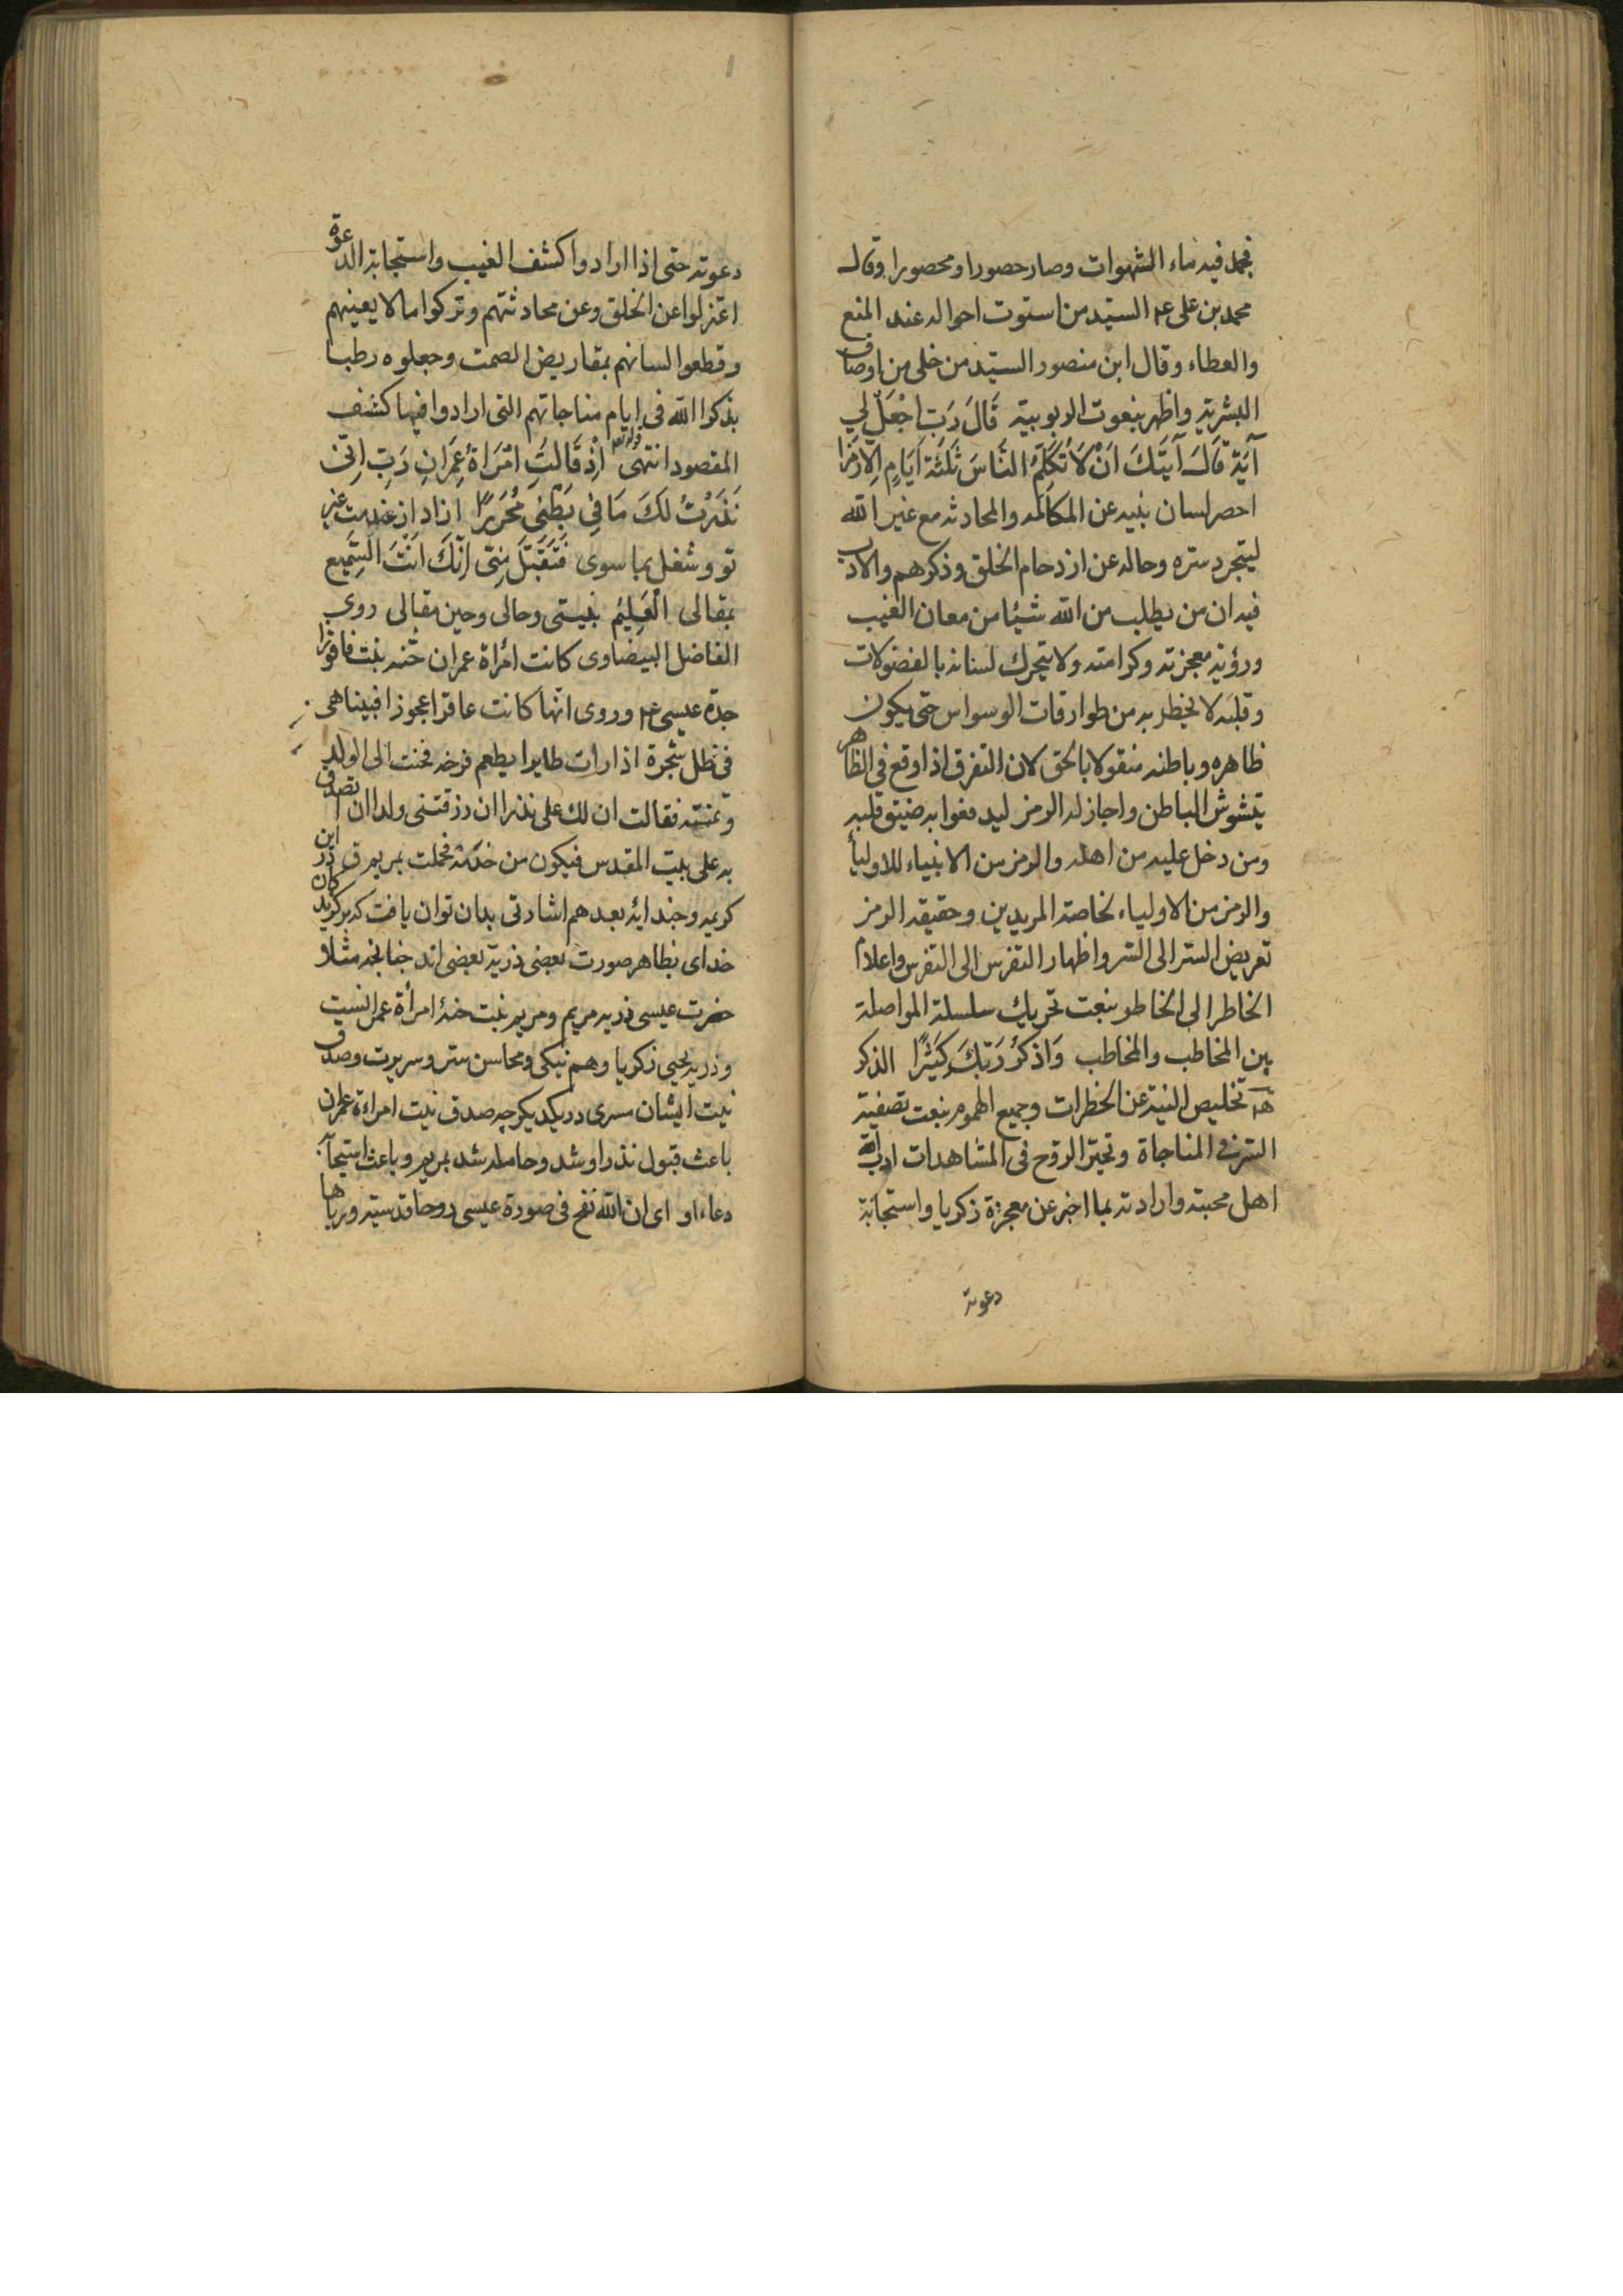 فجمد فيه ماء الشهوات وصار حصورا ومحصورا وقال
محمد بن على عم السيد من استوت احواله عند المنع
والعطاء وقال ابن منصور السيد من خلى من اوصاف
البشرية واظهر بنعوت الربوبية قَالَ رَبِّ اجْعَلْ لِي
آيَةً قَالَ آيَتُكَ اَنْ لَا تُكَلِّمَ النَّاسَ ثَلٰثَةَ اَيَّامٍ اِلَّا رَمْزًا
احصر لسان نبيه عن المكالمه والمحادثه مع غير الله
ليتجرد سره وحاله عن ازدحام الخلق وذكرهم والادب
فيه ان من يطلب من الله شيئا من معان الغيب
ورؤية معجزته وكرامته ولا يتحرك لسانه بالفضولات
وقلبه لا يخطر به من طوارقات الوسواس حتى يكون
ظاهره وباطنه منقولا بالحق لان التفرق اذا وقع في الظاهر
يتشوش الباطن واجاز له الرمز ليدفعوا به ضيق قلبه
ومن دخل عليه من اهله والرمز من الانبياء للاولياء
والرمز من الاولياء لخاصة المريدين وحقيقه الرمز
تعريض السر الى السر واظهار التفرس الى التفرس واعلام
الخاطر الى الخاطر بنعت تحريك سلسلة المواصلة
بين المخاطب والمخاطب وَاذْكُرْ رَبَّكَ كَثِيْرًا الذكر
تخليص النية عن الخطرات وجميع الهموم بنعت تصفية
السر في المناجاة وتحير الروح فى المشاهدات ادب الله
اهل محبته وارادته بما اخبر عن معجزة زكريا واستجابة
دعوته
دعوته حتى اذا ارادوا كشف الغيب واستجابة الدعوة
اعتزلوا عن الخلق وعن محادثتهم وتركوا ما لا يعينهم
وقطعوا السانهم بمقاريض الصمت وجعلوه رطبا
بذكر الله فى ايام مناجاتهم التى ارادوا فيها كشف
المقصود انتهى قوله تع اِذْ قَالَتِ امْرَاةُ عِمْرَانَ رَبِّ اِنِّى
نَذَرْتُ لَكَ مَا فِى بَطْنِى مُحَرَّرًا ازاد از خدمت غير
تو وشغل بما سوى فَتَقَبَّلْ مِنِّى اِنَّكَ اَنْتَ السَّمِيع
بمقالى الْعَلِيْمُ بنيتى وحالى وحين مقالى روى
الفاضل البيضاوى كانت امرأة عمران حنه بنت فاقوزا
جدة عيسى عم وروى انها كانت عاقرا عجوزا فبينا هى
فى ظل شجرة اذ ارات طايرا يطعم فرخه فحنت الى الولد
وتمنته فقالت ان لك على نذرا ان رزقتنى ولدا ان تصدق
به على بيت المقدس فيكون من خدمه فحملت بمريم ق در اين
كريمه وچند ايهٔ بعد هم اشارتى بدان توان يافت كه بركزيدكان
خداى بظاهر صورت بعضى ذرية بعضى اند چنانچه مثلا
حضرت عيسى ذريه مريم ومريم بنت حنهٔ امرأة عمرانست
وذريه يحيى زكريا وهم نيكى ومحاسن ستر وسريرت وصدق
نيت ايشان مسرى در يكديكر چه صدق نيت امراءة عمران
باعث قبول نذر او شد وحامله شد بمريم وباعث استجابه
دعاء او اى ان الله نفخ فى صورة عيسى روحا قدسية ورباها